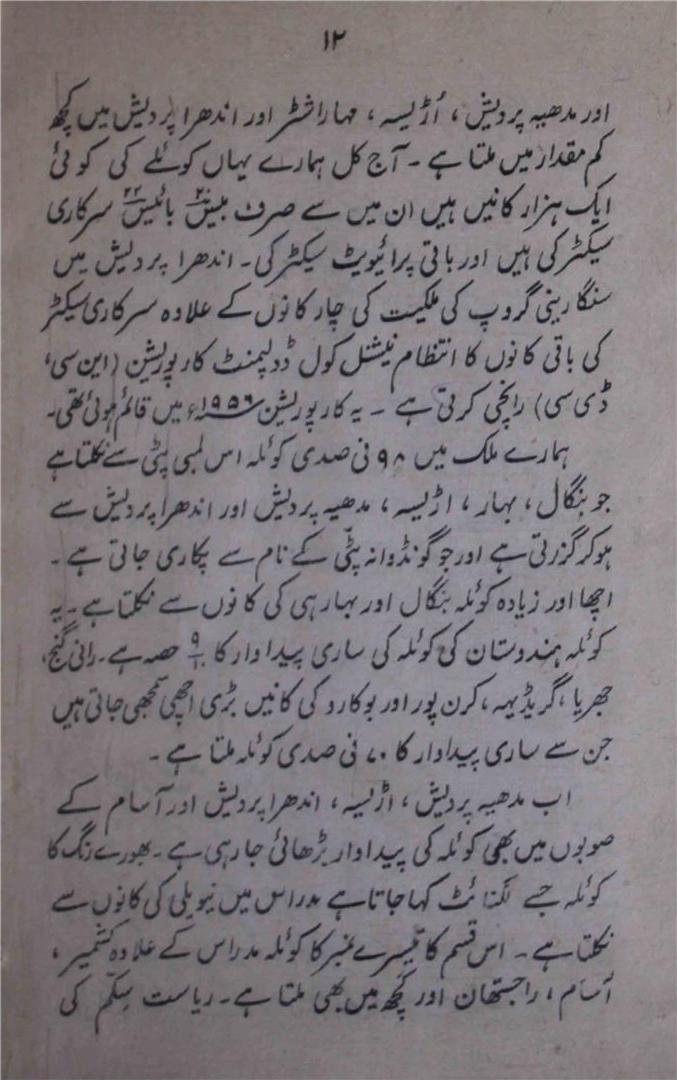 ۱۲
اور مدھیہ پردیش، اُڑیسہ، مہاراشٹر اور اندھرا پردیش میں کچھ
کم مقدار میں ملتا ہے ۔ آج کل ہمارے یہاں کوئلے کی کوئی
ایک ہزار کانیں ہیں ان میں سے صرف بیس۲۰ بائیس۲۲ سرکاری
سیکٹر کی ہیں اور باقی پرائیویٹ سیکٹر کی۔ اندھرا پردیش میں
سنگارینی گروپ کی ملکیت کی چار کانوں کے علاوہ سرکاری سیکٹر
کی باقی کانوں کا انتظام نیشنل کول ڈولپمنٹ کارپوریشن (این سی،
ڈی سی) رانچی کرتی ہے ۔ یہ کارپوریشن ۱۹۵۶ء میں قائم ہوئی تھی۔
ہمارے ملک میں ۹۸ فی صدی کوئلہ اس لمبی پٹی سے نکلتا ہے
جو بنگال، بہار، اڑیسہ، مدھیہ پردیش اور اندھرا پردیش سے
ہو کر گزرتی ہے اور جو گونڈوانہ پٹّی کے نام سے پکاری جاتی ہے ۔
اچھا اور زیادہ کوئلہ بنگال اور بہار ہی کی کانوں سے نکلتا ہے ۔ یہ
کوئلہ ہندوستان کی کوئلہ کی ساری پیداوار کا ۹/۱۰ حصہ ہے۔ رانی گنج،
جھریا، گریڈیہہ، کرن پور اور بوکارو کی کانیں بڑی اچھی سمجھی جاتی ہیں
جن سے ساری پیداوار کا ۷۰ فی صدی کوئلہ ملتا ہے ۔
اب مدھیہ پردیش، اڑیسہ، اندھرا پردیش اور آسام کے
صوبوں میں بھی کوئلہ کی پیداوار بڑھائی جا رہی ہے ۔ بھورے رنگ کا
کوئلہ جسے لگنائٹ کہا جاتا ہے مدراس میں نیویلی کی کانوں سے
نکلتا ہے ۔ اس قسم کا تیسرے نمبر کا کوئلہ مدراس کے علاوہ کشمیر،
آسام، راجستھان اور کچھ میں بھی ملتا ہے ۔ ریاست سِکّم کی